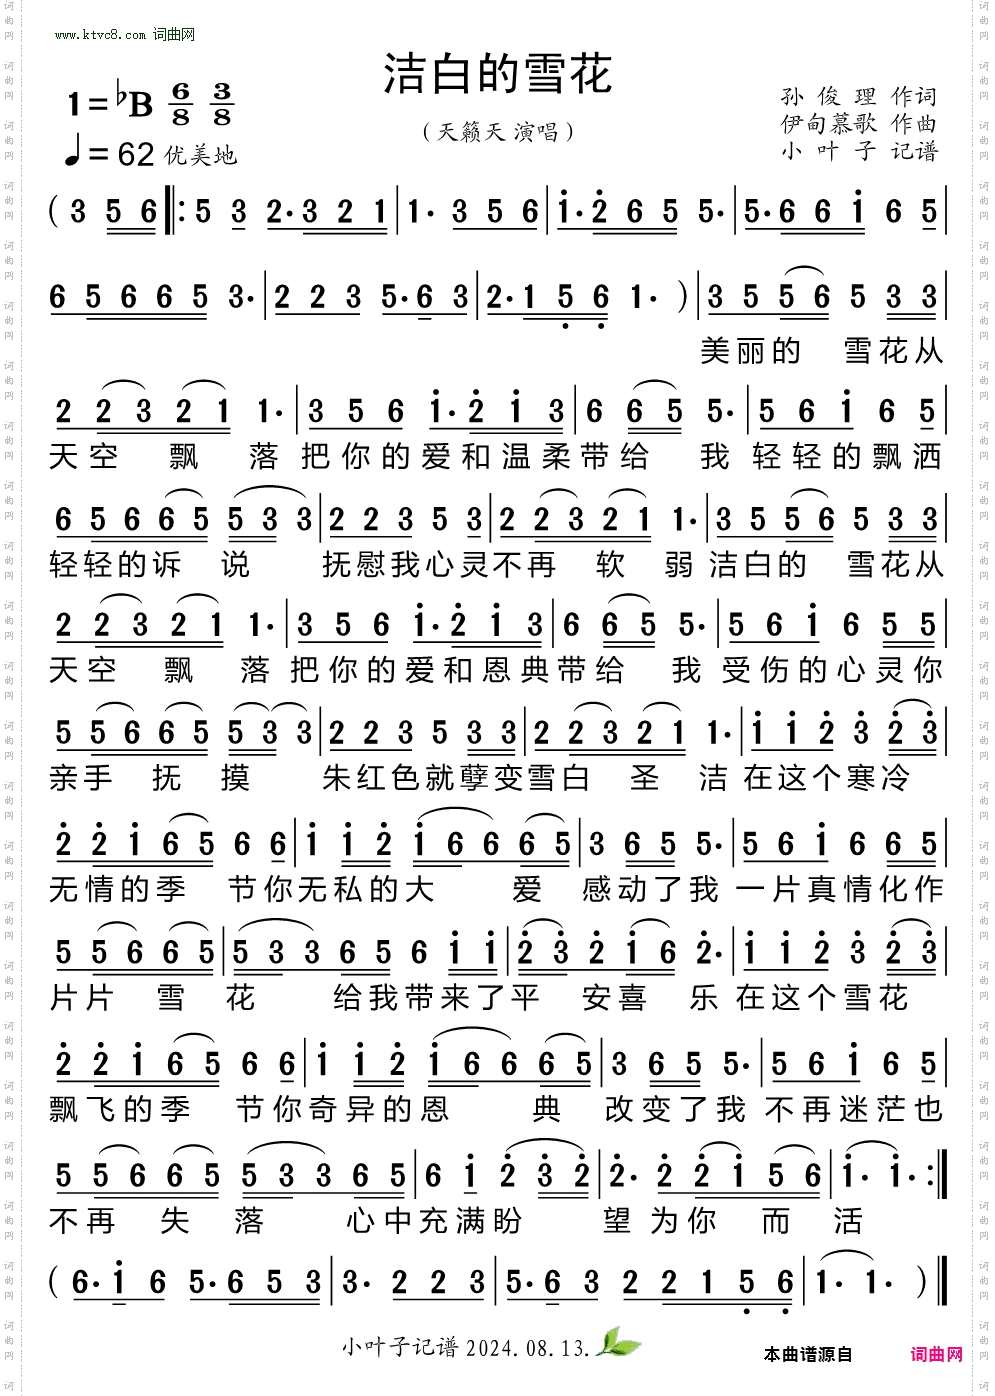 www.ktvc8.com 词曲网
洁白的雪花
1=♭B 6/8 3/8
(天籁天 演唱)
孙 俊 理 作词
伊甸慕歌 作曲
♩=62 优美地
小 叶 子 记谱
( 3 5 6 ‖: 5 3 2· 3 2 1 | 1· 3 5 6 | i· 2 6 5 5· | 5· 6 6 i 6 5 |
6 5 6 6 5 3· | 2 2 3 5· 6 3 | 2· 1 5 6 1· ) | 3 5 5 6 5 3 3 |
美丽的 雪花从
2 2 3 2 1 1· | 3 5 6 i· 2 i 3 | 6 6 5 5· | 5 6 i 6 5 |
天空 飘 落 把你的爱和温柔带给 我 轻轻的飘洒
6 5 6 6 5 5 3 3 | 2 2 3 5 3 | 2 2 3 2 1 1· | 3 5 5 6 5 3 3 |
轻轻的诉 说 抚慰我心灵不再 软 弱 洁白的 雪花从
2 2 3 2 1 1· | 3 5 6 i· 2 i 3 | 6 6 5 5· | 5 6 i 6 5 5 |
天空 飘 落 把你的爱和恩典带给 我 受伤的心灵你
5 5 6 6 5 5 3 3 | 2 2 3 5 3 3 | 2 2 3 2 1 1· | i i 2 3 2 3 |
亲手 抚 摸 朱红色就孽变雪白 圣 洁 在这个寒冷
2 2 i 6 5 6 6 | i i 2 i 6 6 6 5 | 3 6 5 5· | 5 6 i 6 6 5 |
无情的季 节你无私的大 爱 感动了我 一片真情化作
5 5 6 6 5 | 5 3 3 6 5 6 i i | 2 3 2 i 6 2· | i i 2 3 2 3 |
片片 雪 花 给我带来了平 安喜 乐 在这个雪花
2 2 i 6 5 6 6 | i i 2 i 6 6 6 5 | 3 6 5 5· | 5 6 i 6 5 |
飘飞的季 节你奇异的恩 典 改变了我 不再迷茫也
5 5 6 6 5 | 5 3 3 6 5 | 6 i 2 3 2 | 2· 2 2 i 5 6 | i· i· :‖
不再 失 落 心中充满盼 望 为你 而 活
( 6· i 6 5· 6 5 3 | 3· 2 2 3 | 5· 6 3 2 2 1 5 6 | 1· 1· ) ‖
小叶子记谱 2024.08.13.
本曲谱源自 词曲网